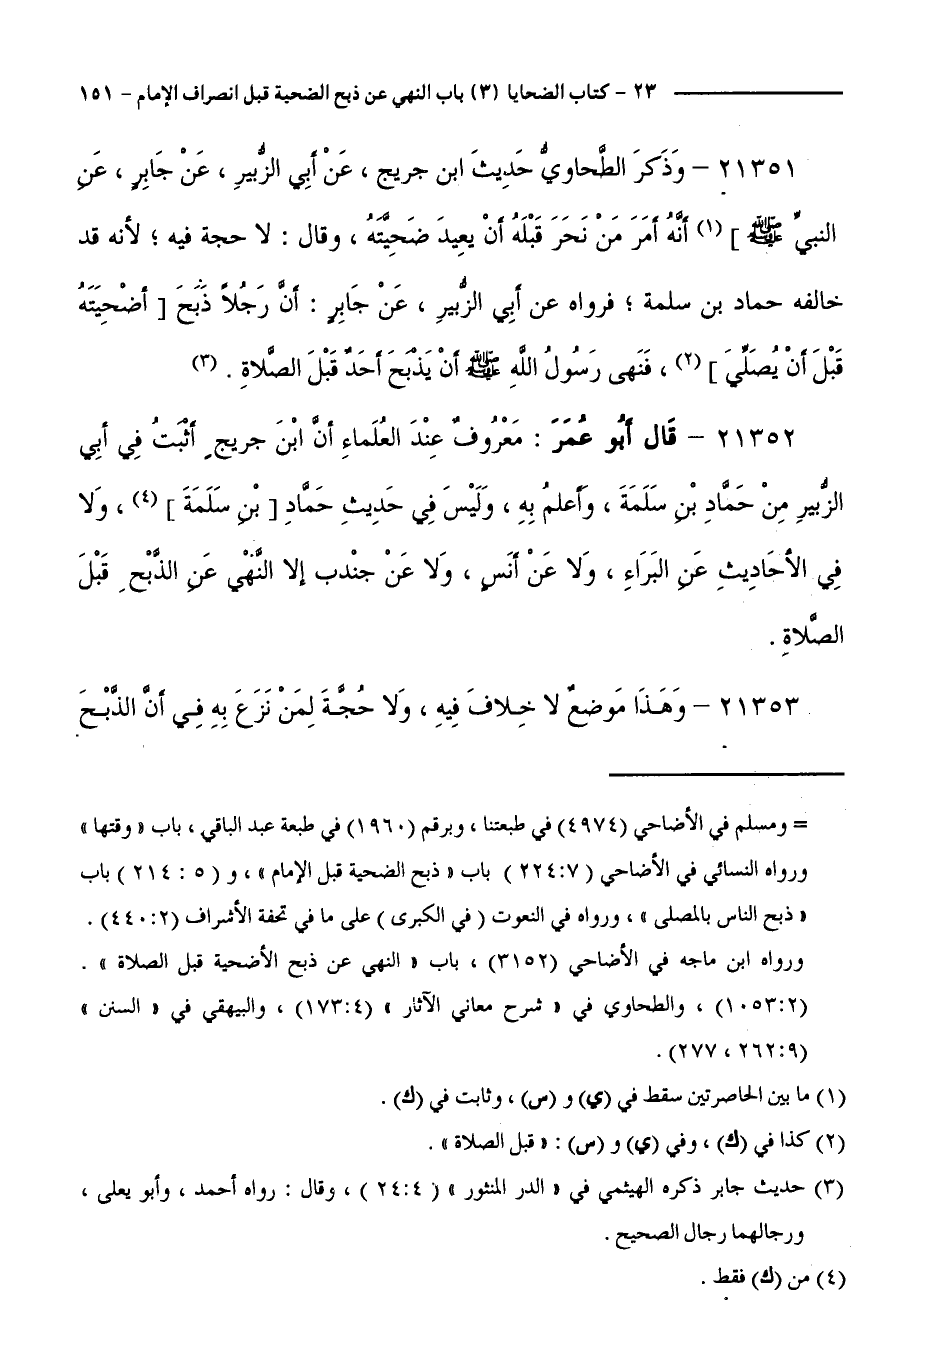 ٢٣ - كتاب الضحايا (٣) باب النهي عن ذبح الضحية قبل انصراف الإمام - ١٥١
٢١٣٥١ - وَذَكَرَ الطَّحاويُّ حَدِيثَ ابن جريج ، عَنْ أَبِي الزُّبيرِ ، عَنْ جَابِرٍ ، عَنِ
النبيِّ ﷺ ] (١) أَنَّهُ أَمَرَ مَنْ نَحَرَ قَبْلَهُ أَنْ يعِيدَ ضَحِيَّتَهُ ، وقال : لا حجة فيه ؛ لأنه قد
خالفه حماد بن سلمة ؛ فرواه عن أبي الزُّبيرِ ، عَنْ جَابِرٍ : أنَّ رَجُلاً ذَبَحَ [ أضْحِيَتَهُ
قَبْلَ أَنْ يُصَلِّيَ ] (٢) ، فَنَهى رَسُولُ اللَّهِ ﷺ أَنْ يَذْبَحَ أَحَدٌ قَبْلَ الصَّلاةِ . (٣)
٢١٣٥٢ - قَال أَبُو عُمَرَ : مَعْرُوفٌ عِنْدَ العُلَماءِ أنَّ ابْنَ جريجٍ أَثْبَتُ فِي أبي
الزُّبيرِ مِنْ حَمَّادِ بْنِ سَلَمَةَ ، وَأَعلمُ بِهِ ، وَلَيْسَ فِي حَدِيثِ حَمَّادِ [ بْنِ سَلَمَةَ ] (٤) ، وَلا
فِي الأحَادِيثِ عَنِ البَرَاءِ ، وَلا عَنْ أَنَسٍ ، وَلا عَنْ جندب إلا النَّهْي عَنِ الذَّبْحِ قَبْلَ
الصَّلاةِ .
٢١٣٥٣ - وَهَذَا مَوضعٌ لا خِلافَ فِيهِ ، وَلا حُجَّةَ لِمَنْ نَزَعَ بِهِ فِي أَنَّ الذَّبْحَ
= ومسلم في الأضاحي (٤٩٧٤) في طبعتنا ، وبرقم (١٩٦٠) في طبعة عبد الباقي ، باب « وقتها »
ورواه النسائي في الأضاحي (٢٢٤:٧ ) باب « ذبح الضحية قبل الإمام » ، و ( ٥ : ٢١٤ ) باب
« ذبح الناس بالمصلى » ، ورواه في النعوت ( في الكبرى ) على ما في تحفة الأشراف (٤٤٠:٢) .
ورواه ابن ماجه في الأضاحي (٣١٥٢) ، باب « النهي عن ذبح الأضحية قبل الصلاة » .
(١٠٥٣:٢) ، والطحاوي في « شرح معاني الآثار » (١٧٣:٤) ، والبيهقي في « السنن »
(٢٦٢:٩ ، ٢٧٧) .
(١) ما بين الحاصرتين سقط في (ي) و (س) ، وثابت في (ك) .
(٢) كذا في (ك) ، وفي (ي) و (س) : « قبل الصلاة » .
(٣) حديث جابر ذكره الهيثمي في « الدر المنثور » ( ٢٤:٤ ) ، وقال : رواه أحمد ، وأبو يعلى ،
ورجالهما رجال الصحيح .
(٤) من (ك) فقط .